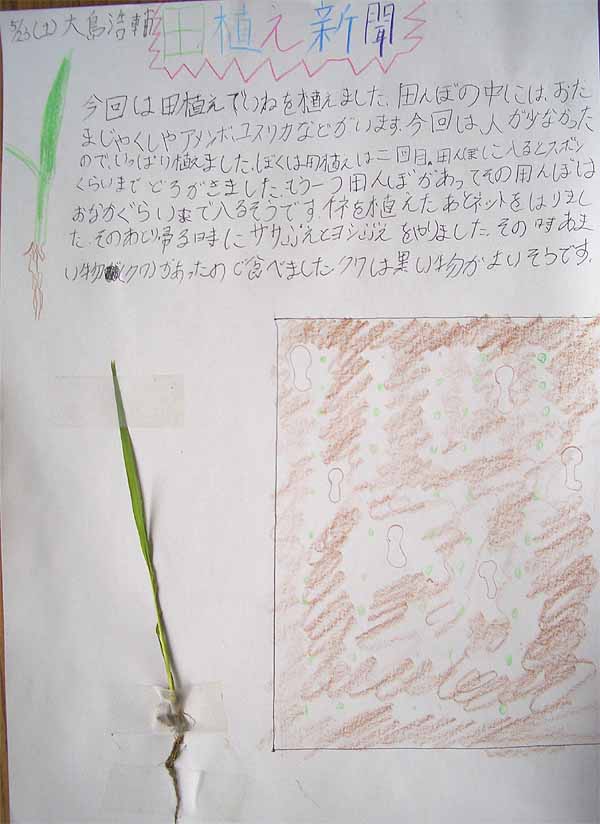 5/23(土)大島浩輔
田植え新聞
今回は田植えでいねを植えました。田んぼの中には、おた
まじゃくしやアメンボ、ユスリカなどがいます。今回は、人が少なかった
ので、いっぱい植えました。ぼくは田植えは二回目。田んぼに入るとズボン
くらいまでどろがきました。もう一つ田んぼがあってその田んぼは
おなかぐらいまで入るそうです。イネを植えたあとネットをはりまし
た。そのあと帰る時にササぶえとヨシぶえをやりました。その時あま
い物(クワ)があったので食べました。クワは黒い物がよいそうです。